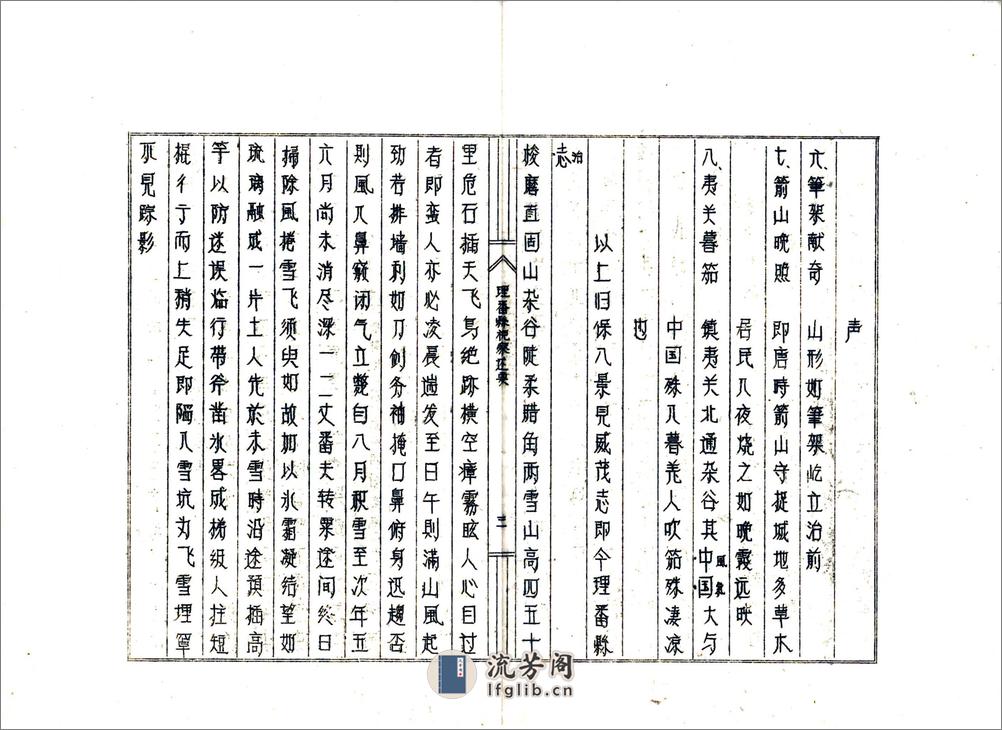 声
六、筆架献奇　山形如筆架屹立治前
七、箭山晚照　即唐時箭山守捉城地多草木
居民入夜烧之如晚霞远映
八、夷关暮笳　鎮夷关北通杂谷其中国大与
風景
中国殊入暮羌人吹笳殊凄凉
也
以上归保八景見威茂志即今理番縣
治
志
梭磨直固山杂谷陡柔腊角两雪山高四五十
理番縣视察述要
三
里危石插天飞鳥绝跡横空瘴霧眩人心目过
者即蛮人亦必凌晨遄发至日午則滿山風起
劲若排墙利如刀劍务袖掩口鼻俯身迅趨否
則風入鼻竅闭气立斃自八月积雪至次年五
六月尚未消尽深一二丈番夫转粟途间终日
掃除風捲雪飞须臾如故加以氷霜凝结望如
琉璃融成一片土人先於未雪時沿途預插高
竿以防迷误临行带斧凿氷畧成梯级人拄短
棍彳亍而上稍失足即陷入雪坑为飞雪埋罩
不見踪影
流芳阁
lfglib.cn